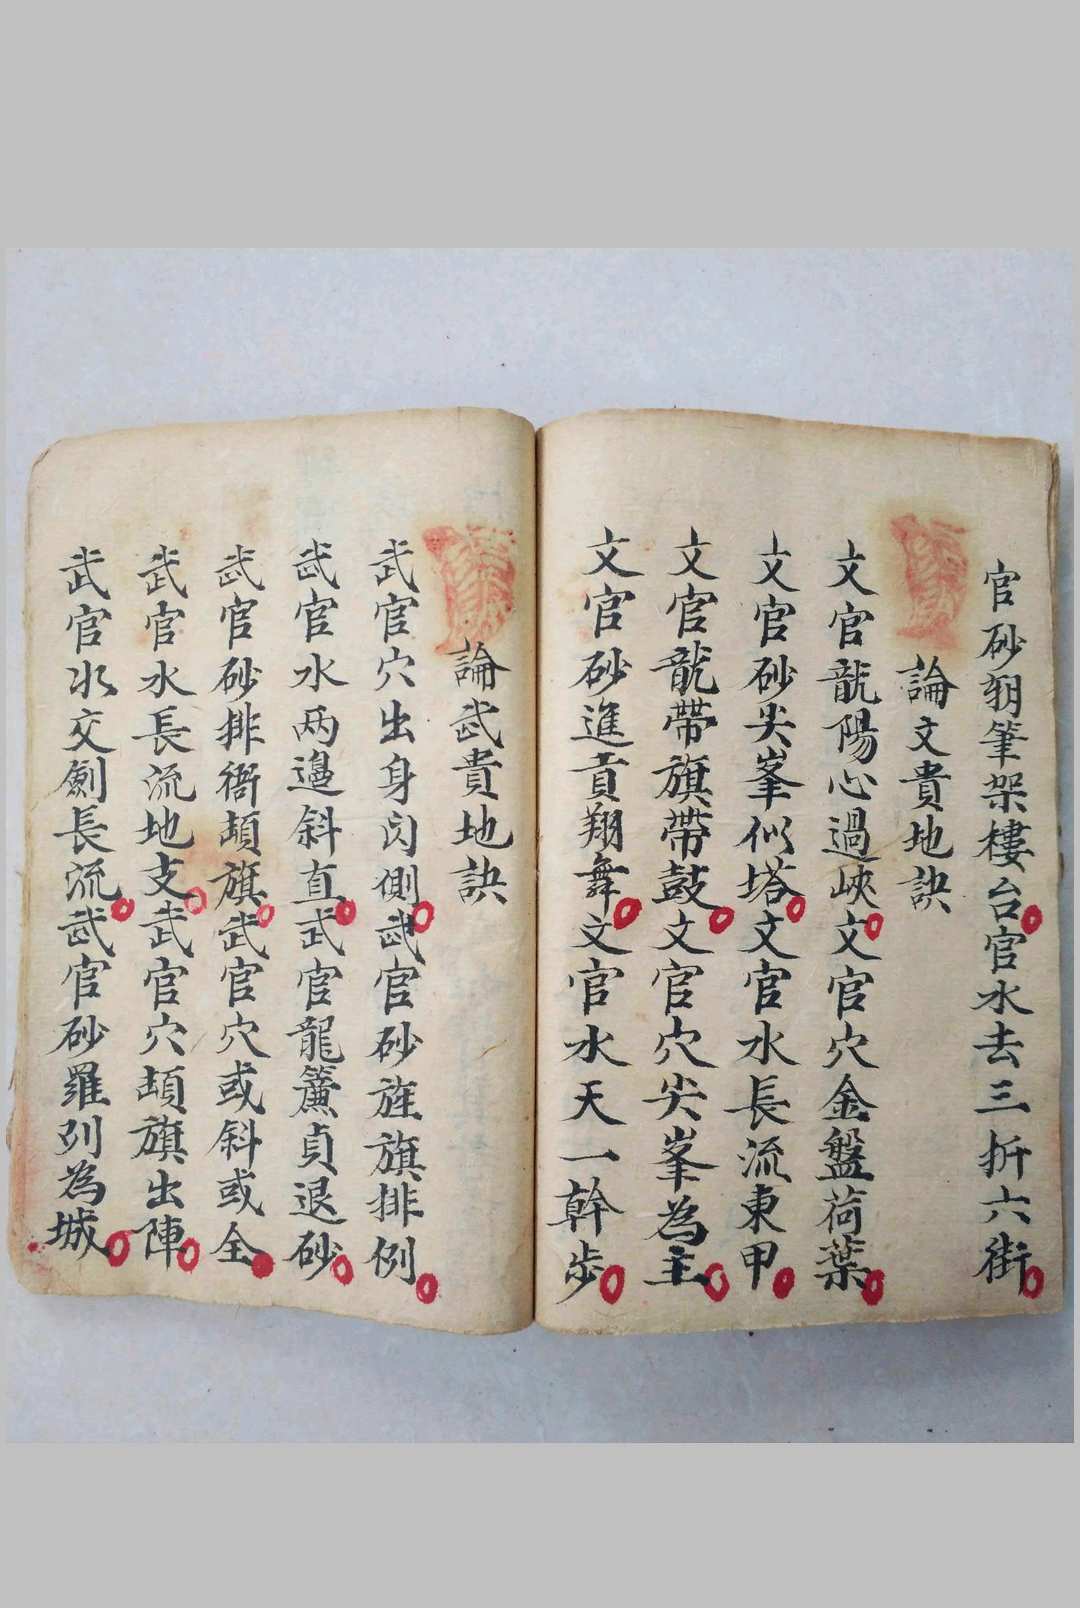 官砂朝筆架樓台官水去三折六街
論文貴地訣
文官龍陽心過峽文官穴金盤荷葉
文官砂尖峯似塔文官水長流東甲
文官龍帶旗帶鼓文官穴尖峯為主
文官砂進貢翔舞文官水天一幹步
論武貴地訣
武官穴出身閃側武官砂旌旗排例
武官水两邉斜直武官龍簾貞退砂
武官砂排衙頡旗武官穴或斜或全
武官水長流地支武官穴頡旗出陣
武官水交劍長流武官砂羅列為城